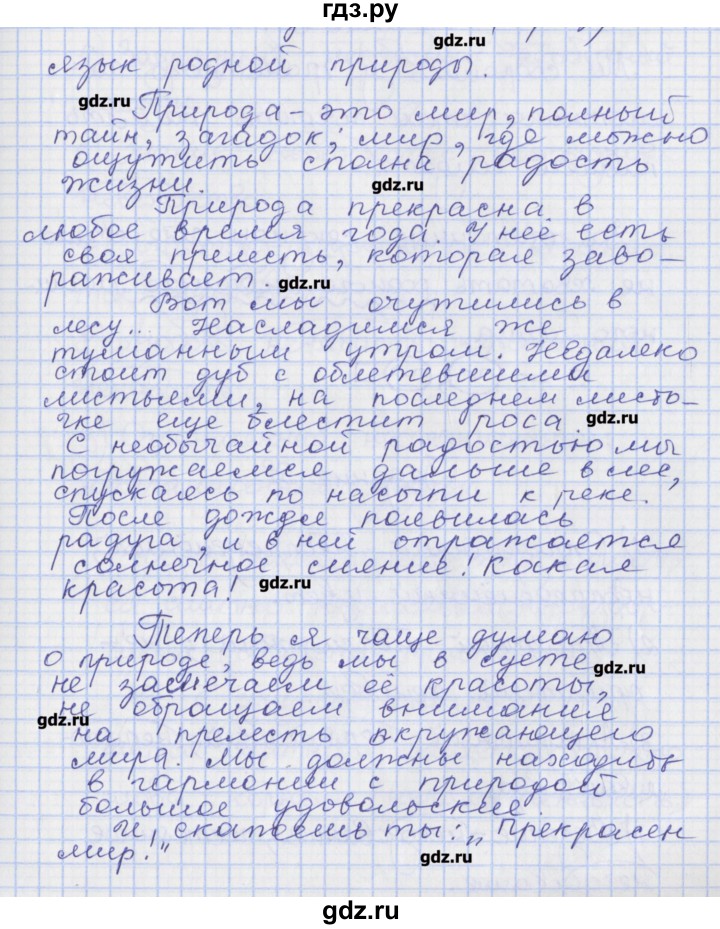 гдз.ру
gdz.ru
язык родной природы.
gdz.ru
Природа - это мир, полный
тайн, загадок; мир, где можно
ощутить сполна радость
жизни.
gdz.ru
Природа прекрасна в
любое время года. У неё есть
своя прелесть, которая заво-
раживает.
gdz.ru
Вот мы очутились в
лесу... Насладимся же
туманным утром. Недалеко
стоит дуб с облетевшими
листьями, на последнем листо-
чке еще блестит роса.
gdz.ru
С необычайной радостью мы
погружаемся дальше в лес,
спускаясь по насыпи к реке.
После дождя появилась
радуга, и в ней отражается
солнечное сияние! Какая
красота!
gdz.ru
Теперь я чаще думаю
о природе, ведь мы в суете
gdz.ru
не замечаем её красоты,
не обращаем внимания
gdz.ru
на прелесть окружающего
мира. Мы должны находить
в гармонии с природой
большое удовольствие.
И скажешь ты: „Прекрасен
мир!"
gdz.ru
gdz.ru